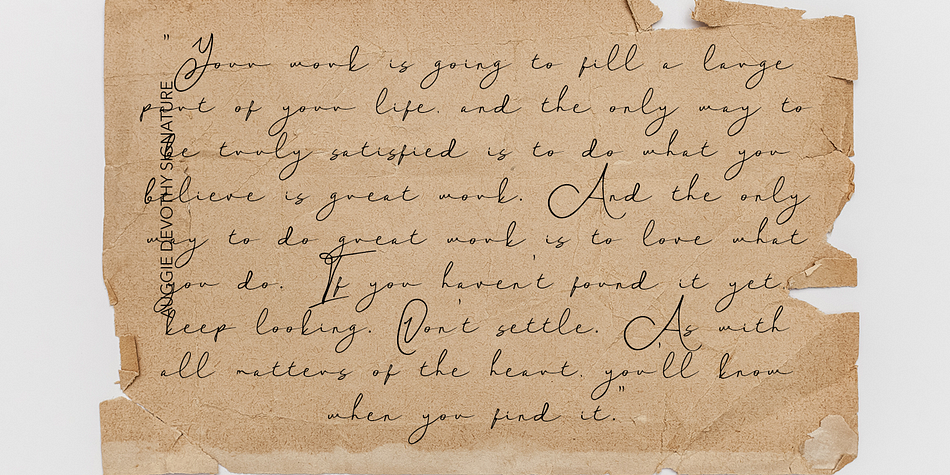 " Your work is going to fill a large
part of your life, and the only way to
be truly satisfied is to do what you
believe is great work. And the only
way to do great work is to love what
you do. If you haven't found it yet,
keep looking. Don't settle. As with
all matters of the heart, you'll know
when you find it."
AUGGIE DEVOTHY SIGNATURE